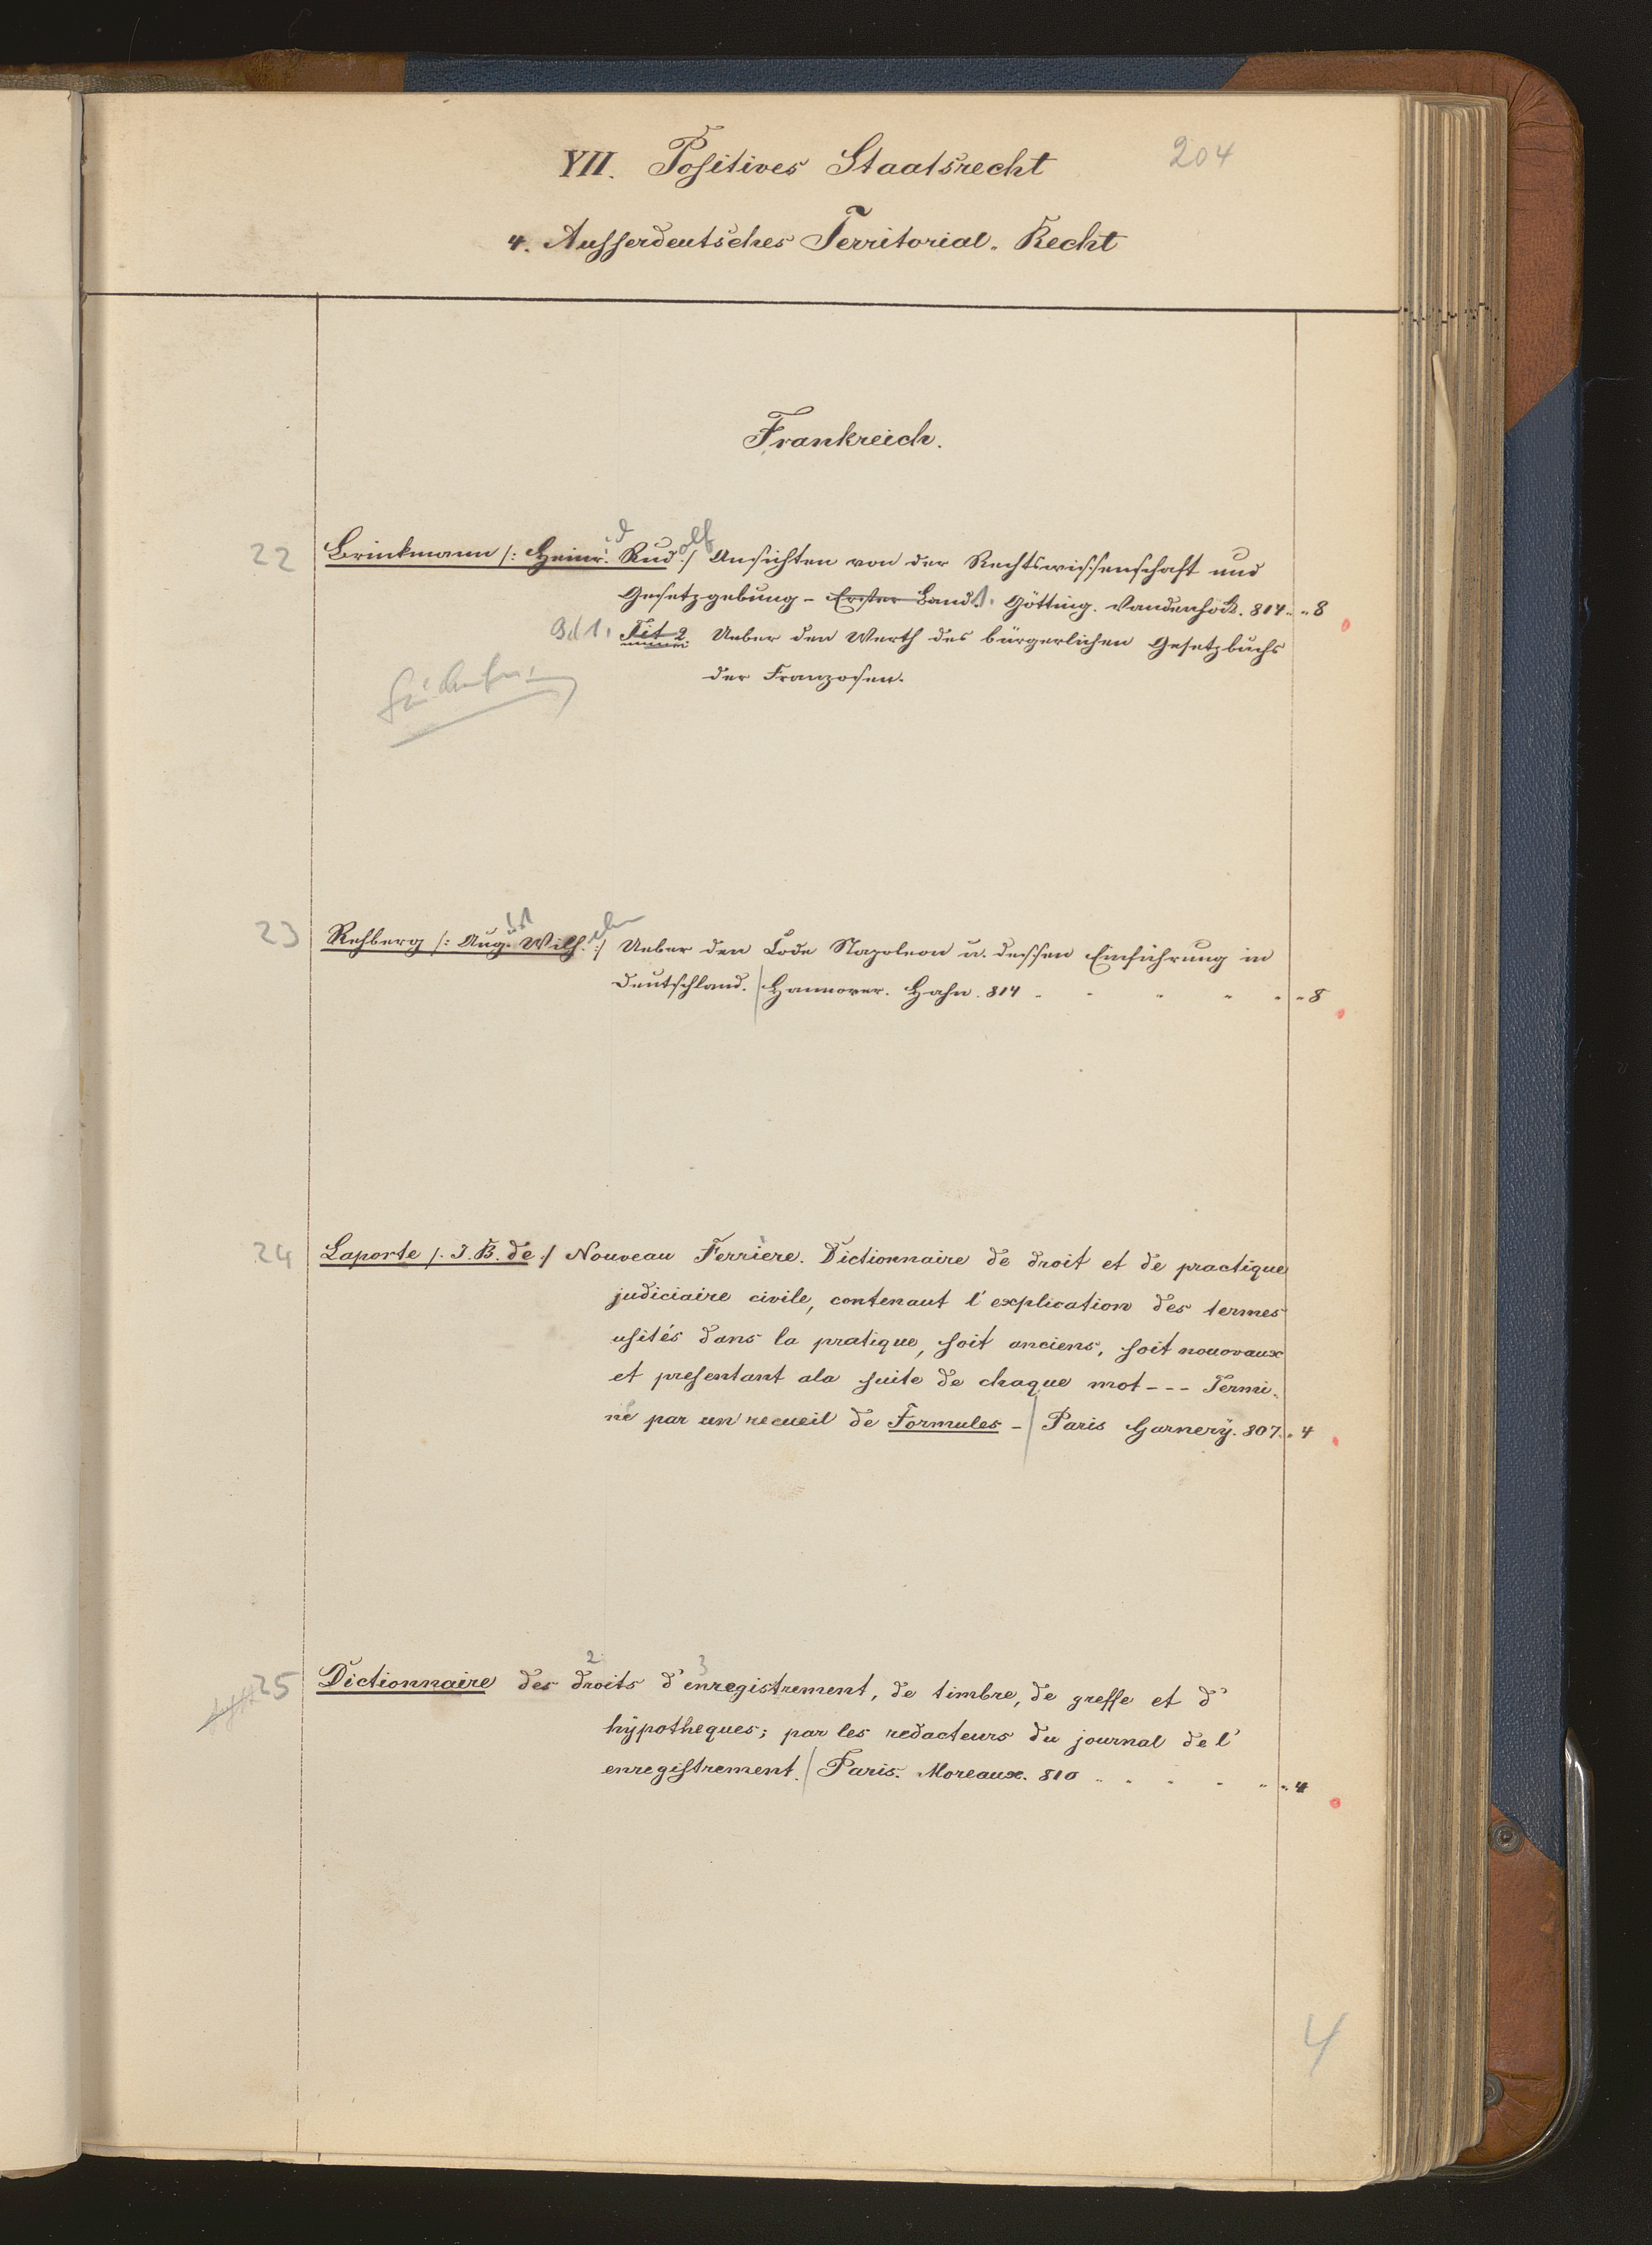 204
VII. Positives Staatsrecht
4. Ausserdeutsches Territorial-Recht
Frankreich.
22 Brinkmann /: Heinr. Rudolf :/ Ansichten von der Rechtswissenschaft und
Gesetzgebung - Erster Band 1. Götting. Vandenhöck. 814. „ 8
Bd 1. Tit 2. Ueber den Werth des bürgerlichen Gesetzbuchs
der Franzosen.
23 Rehberg /: August Wilhelm :/ Ueber den Code Napoleon u. dessen Einführung in
Deutschland. / Hannover. Hahn. 814 „ 8
24 Laporte /. J. B. de ./ Nouveau Ferrière. Dictionnaire de droit et de practique
judiciaire civile, contenaut l'explication des termes
usités dans la pratique, soit anciens, soit nouovaux
et presentant ala suite de chaque mot - - - Termi-
né par un recueil de Formules - / Paris Garnerÿ. 807. „ 4
2 3
25 Dictionnaire des droits d'enregistrement, de timbre, de greffe et d'
hÿpotheques; par les redacteurs du journal de l'
enregistrement. / Paris. Moreaux. 810 „ 4
4